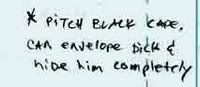 * PITCH BLACK CAPE.
CAN ENVELOPE DICK &
HIDE HIM COMPLETELY